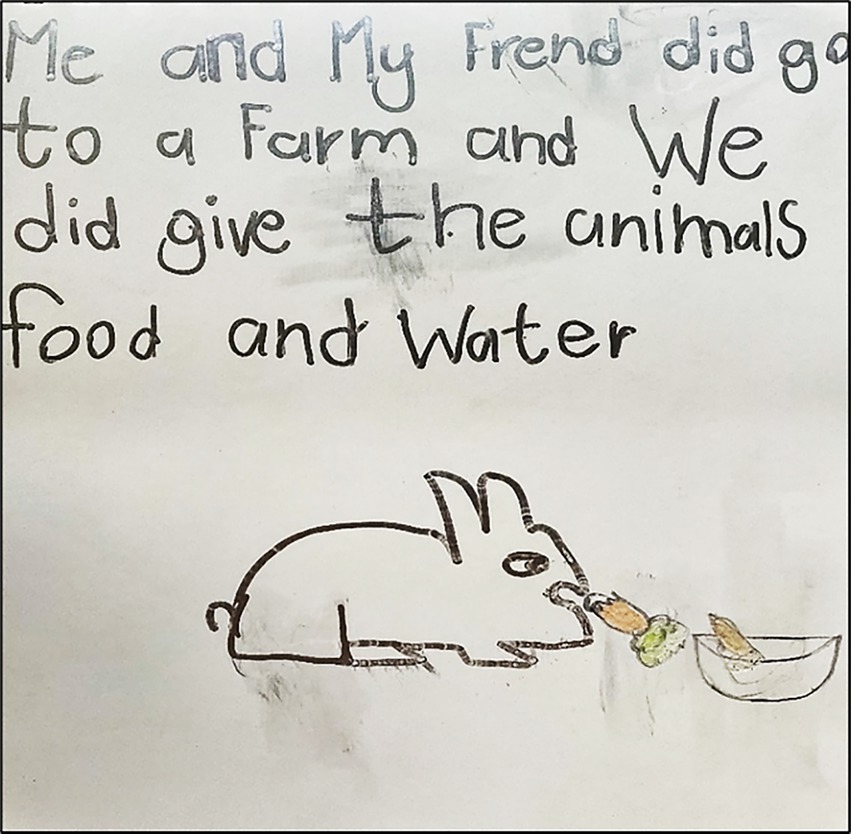 Me and My Frend did go
to a Farm and We
did give the animals
food and Water